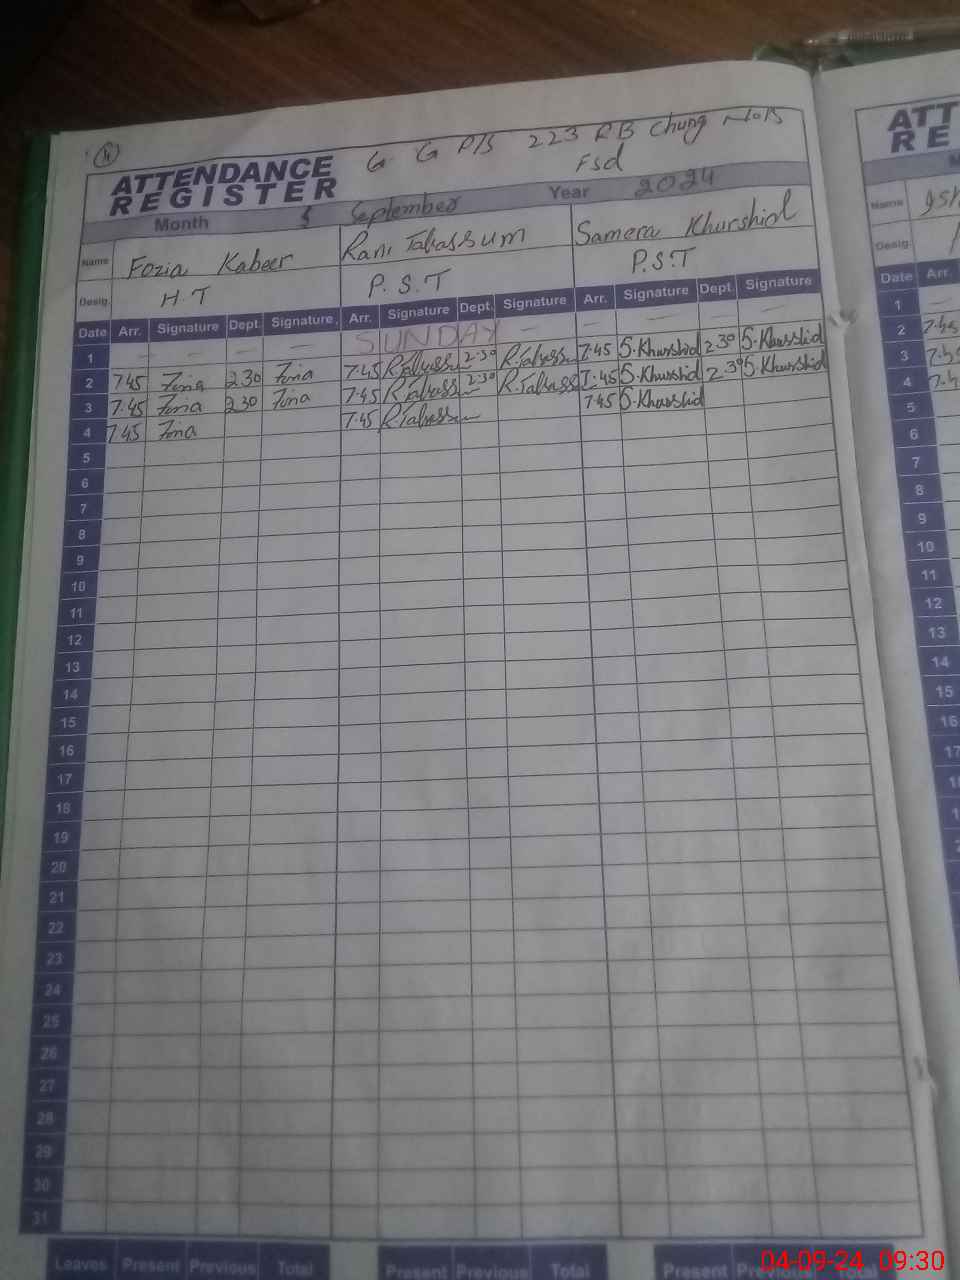 4
G G P/S 223 RB Chung No.B
Fsd
ATTENDANCE
REGISTER
Month September Year 2024
Name Fozia Kabeer Rani Tabassum Samera Khurshid
Desig. H.T P.S.T P.S.T
Date Arr. Signature Dept. Signature Arr. Signature Dept. Signature Arr. Signature Dept. Signature
1 SUNDAY
2 7.45 Fozia 2.30 Fozia 7.45 R.Tabassum 2.30 R.Tabassum 7.45 S.Khurshid 2.30 S.Khurshid
3 7.45 Fozia 2.30 Fozia 7.45 R.Tabassum 2.30 R.Tabassum 7.45 S.Khurshid 2.30 S.Khurshid
4 7.45 Fozia 7.45 R.Tabassum 7.45 S.Khurshid
5
6
7
8
9
10
11
12
13
14
15
16
17
18
19
20
21
22
23
24
25
26
27
28
29
30
31
Leaves Present Previous Total Present Previous Total Present Previous Total
ATT
RE
Name
Desig.
Date Arr.
1
2 7.45
3 7.45
4 7.45
5
6
7
8
9
10
11
12
13
14
15
16
17
04-09-24 09:30